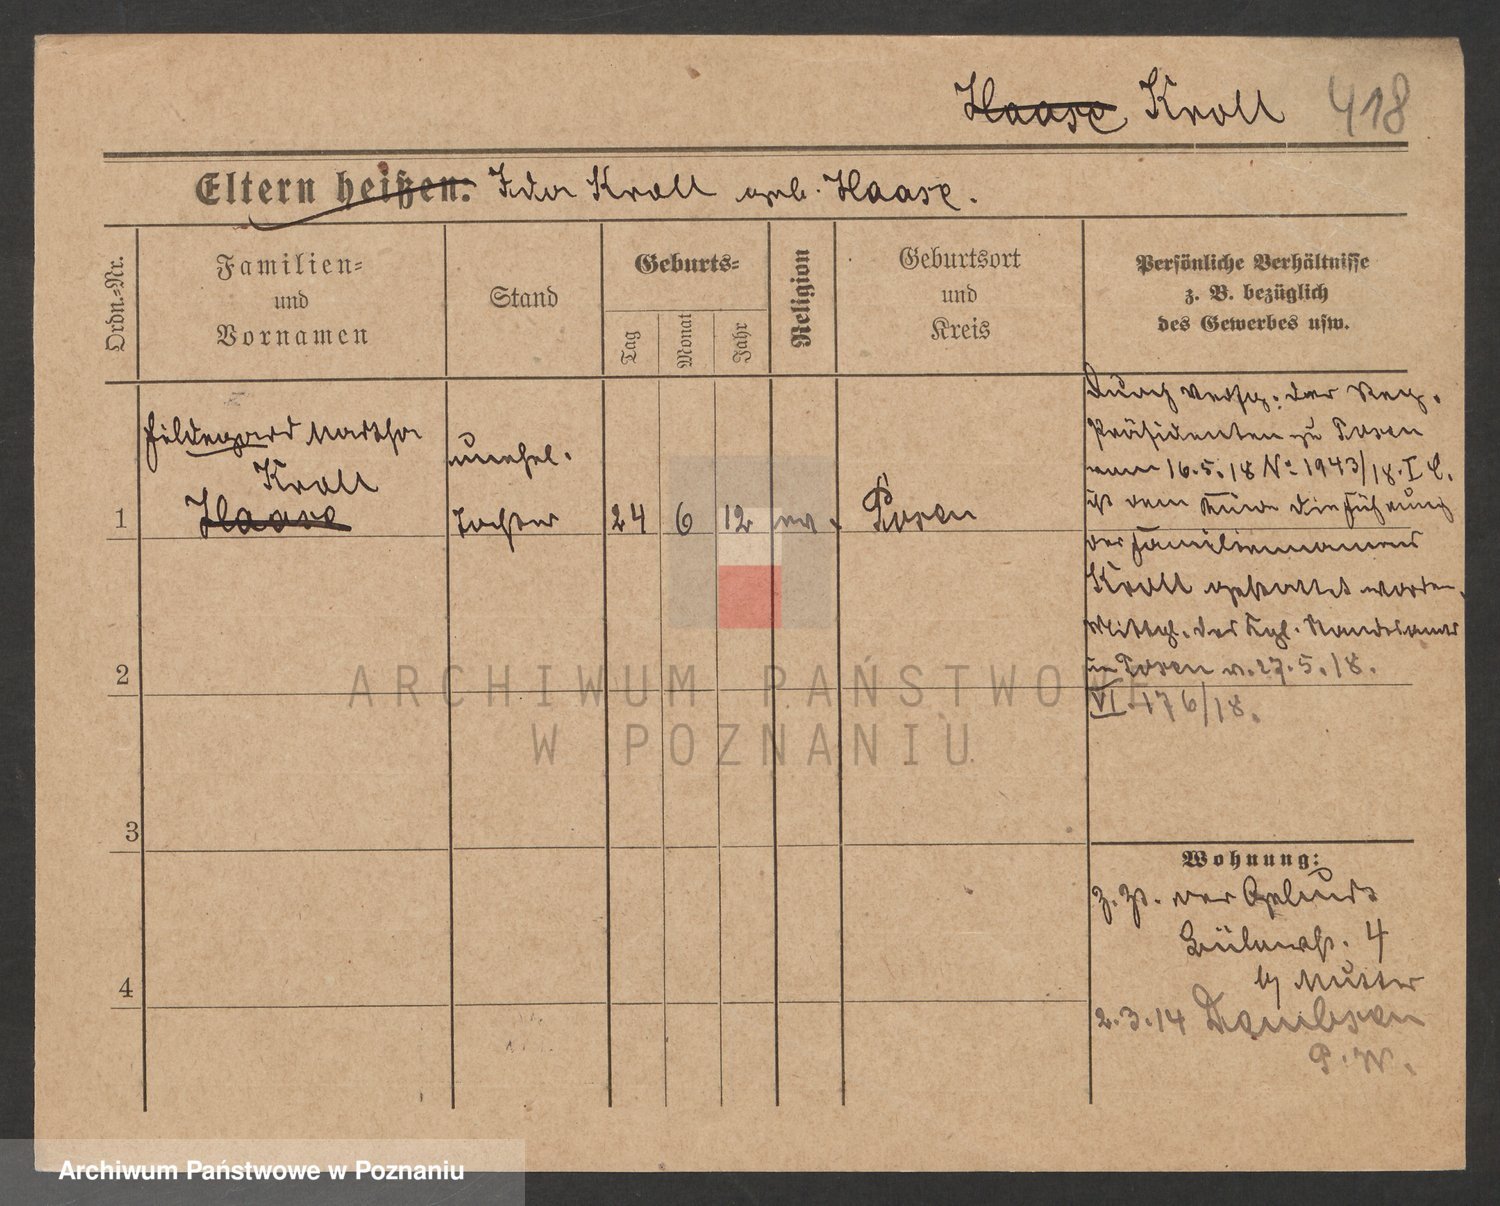 Haase Kroll 418
Eltern heißen: Ida Kroll geb. Haase.
Ordn.-Nr.
Familien-
und
Vornamen
Stand
Geburts-
Tag
Monat
Jahr
Religion
Geburtsort
und
Kreis
Persönliche Verhältnisse
z. B. bezüglich
des Gewerbes usw.
1
Hildegard Martha
Kroll
Haase
unehel.
Tochter
24
6
12
ev.
Posen
Durch Verfüg. des Reg.
Präsidenten zu Posen
vom 16.5.18 No 1943/18.I C.
ist dem Kinde die Führung
des Familiennamens
Kroll gestattet worden.
Mittlg. des Kgl. Standesamts
in Posen v. 27.5.18.
VI 176/18.
2
3
4
Wohnung:
z. Zt. der Geburt
Bülowstr. 4
by Mutter
2.3.14 Dembsen
P. W.
ARCHIWUM PAŃSTWOWE
W POZNANIU
Archiwum Państwowe w Poznaniu